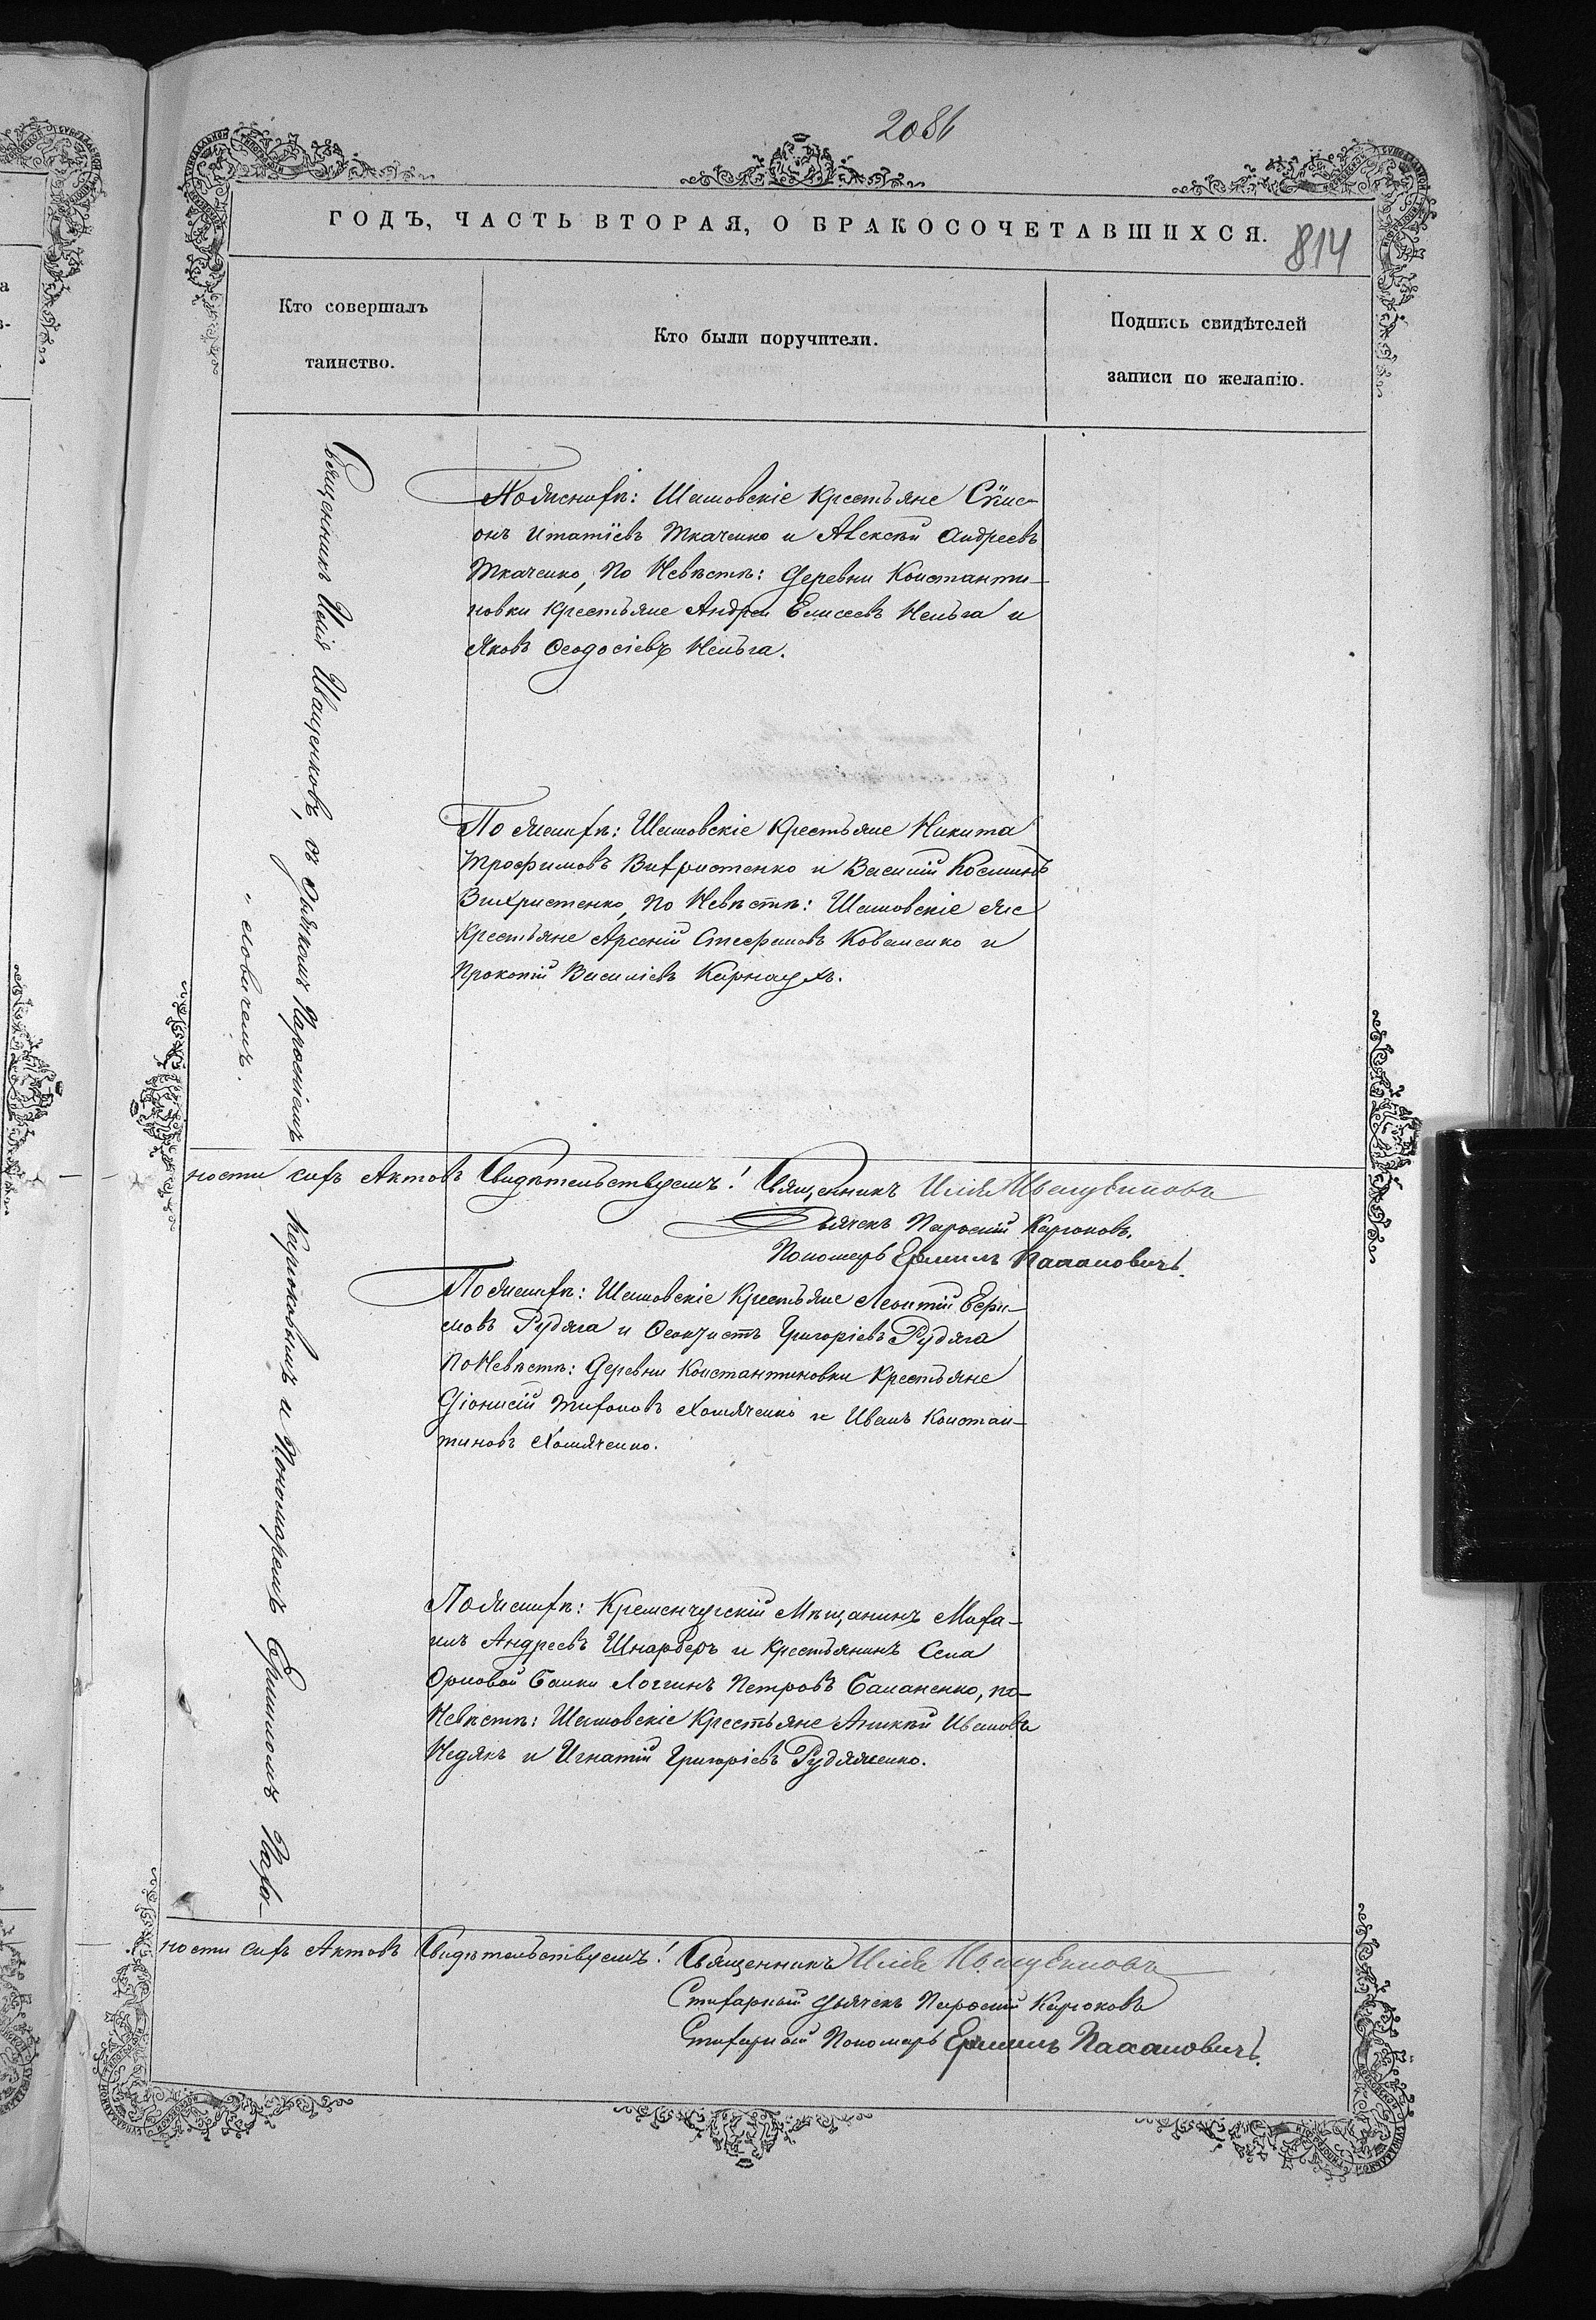 2086
ГОДЪ, ЧАСТЬ ВТОРАЯ, О БРАКОСОЧЕТАВШИХСЯ.
814
Кто совершалъ
таинство.
Кто были поручители.
Подпись свидѣтелей
записи по желанію.
Священникъ Илія Иващенковъ, съ Дьячкомъ Пароѳніемъ
Карюковымъ и Пономаремъ Ермиломъ Паха-
ловичемъ.
По Жениху: Шамовскіе Крестьяне
онъ Ткаченко и Алексѣй Андреевъ
Ткаченко, По Невѣстѣ: Деревни Константи-
новки Крестьяне Андрей Елисеевъ Неньга и
Яковъ Ѳеодосіевъ Неньга.
По Жениху: Шамовскіе Крестьяне Никита
Трофимовъ Вихристенко и Василій Косминъ
Вихристенко, По Невѣстѣ: Шамовскіе же
Крестьяне Арсеній Стефановъ Коваленко и
Прокопій Василіевъ Карнаухъ.
ности сихъ Актовъ Свидѣтельствуемъ! Священникъ Илія Иващенковъ
Дьячекъ Пароѳній Карюковъ.
Пономарь Ермилъ
По Жениху: Шамовскіе Крестьяне Леонтій Ефи-
мовъ Рудяга и Ѳеоктистъ Григоріевъ Рудяга
По Невѣстѣ: Деревни Константиновки Крестьяне
Діонисій Тихоновъ Хомяченко и Иванъ Констан-
тиновъ Хомяченко.
По Жениху: Кременчугскій Мѣщанинъ Миха-
илъ Андреевъ Шнарберъ и Крестьянинъ Села
Орловой Балки Логгинъ Петровъ Баланенко, по
Невѣстѣ: Шамовскіе Крестьяне Аникій Ивановъ
Недякъ и Игнатій Григоріевъ Рудяженко.
ности сихъ Актовъ Свидѣтельствуемъ! Священникъ Илія Иващенковъ
Стихарный Дьячекъ Пароѳній Карюковъ
Стихарный Пономарь Ермилъ